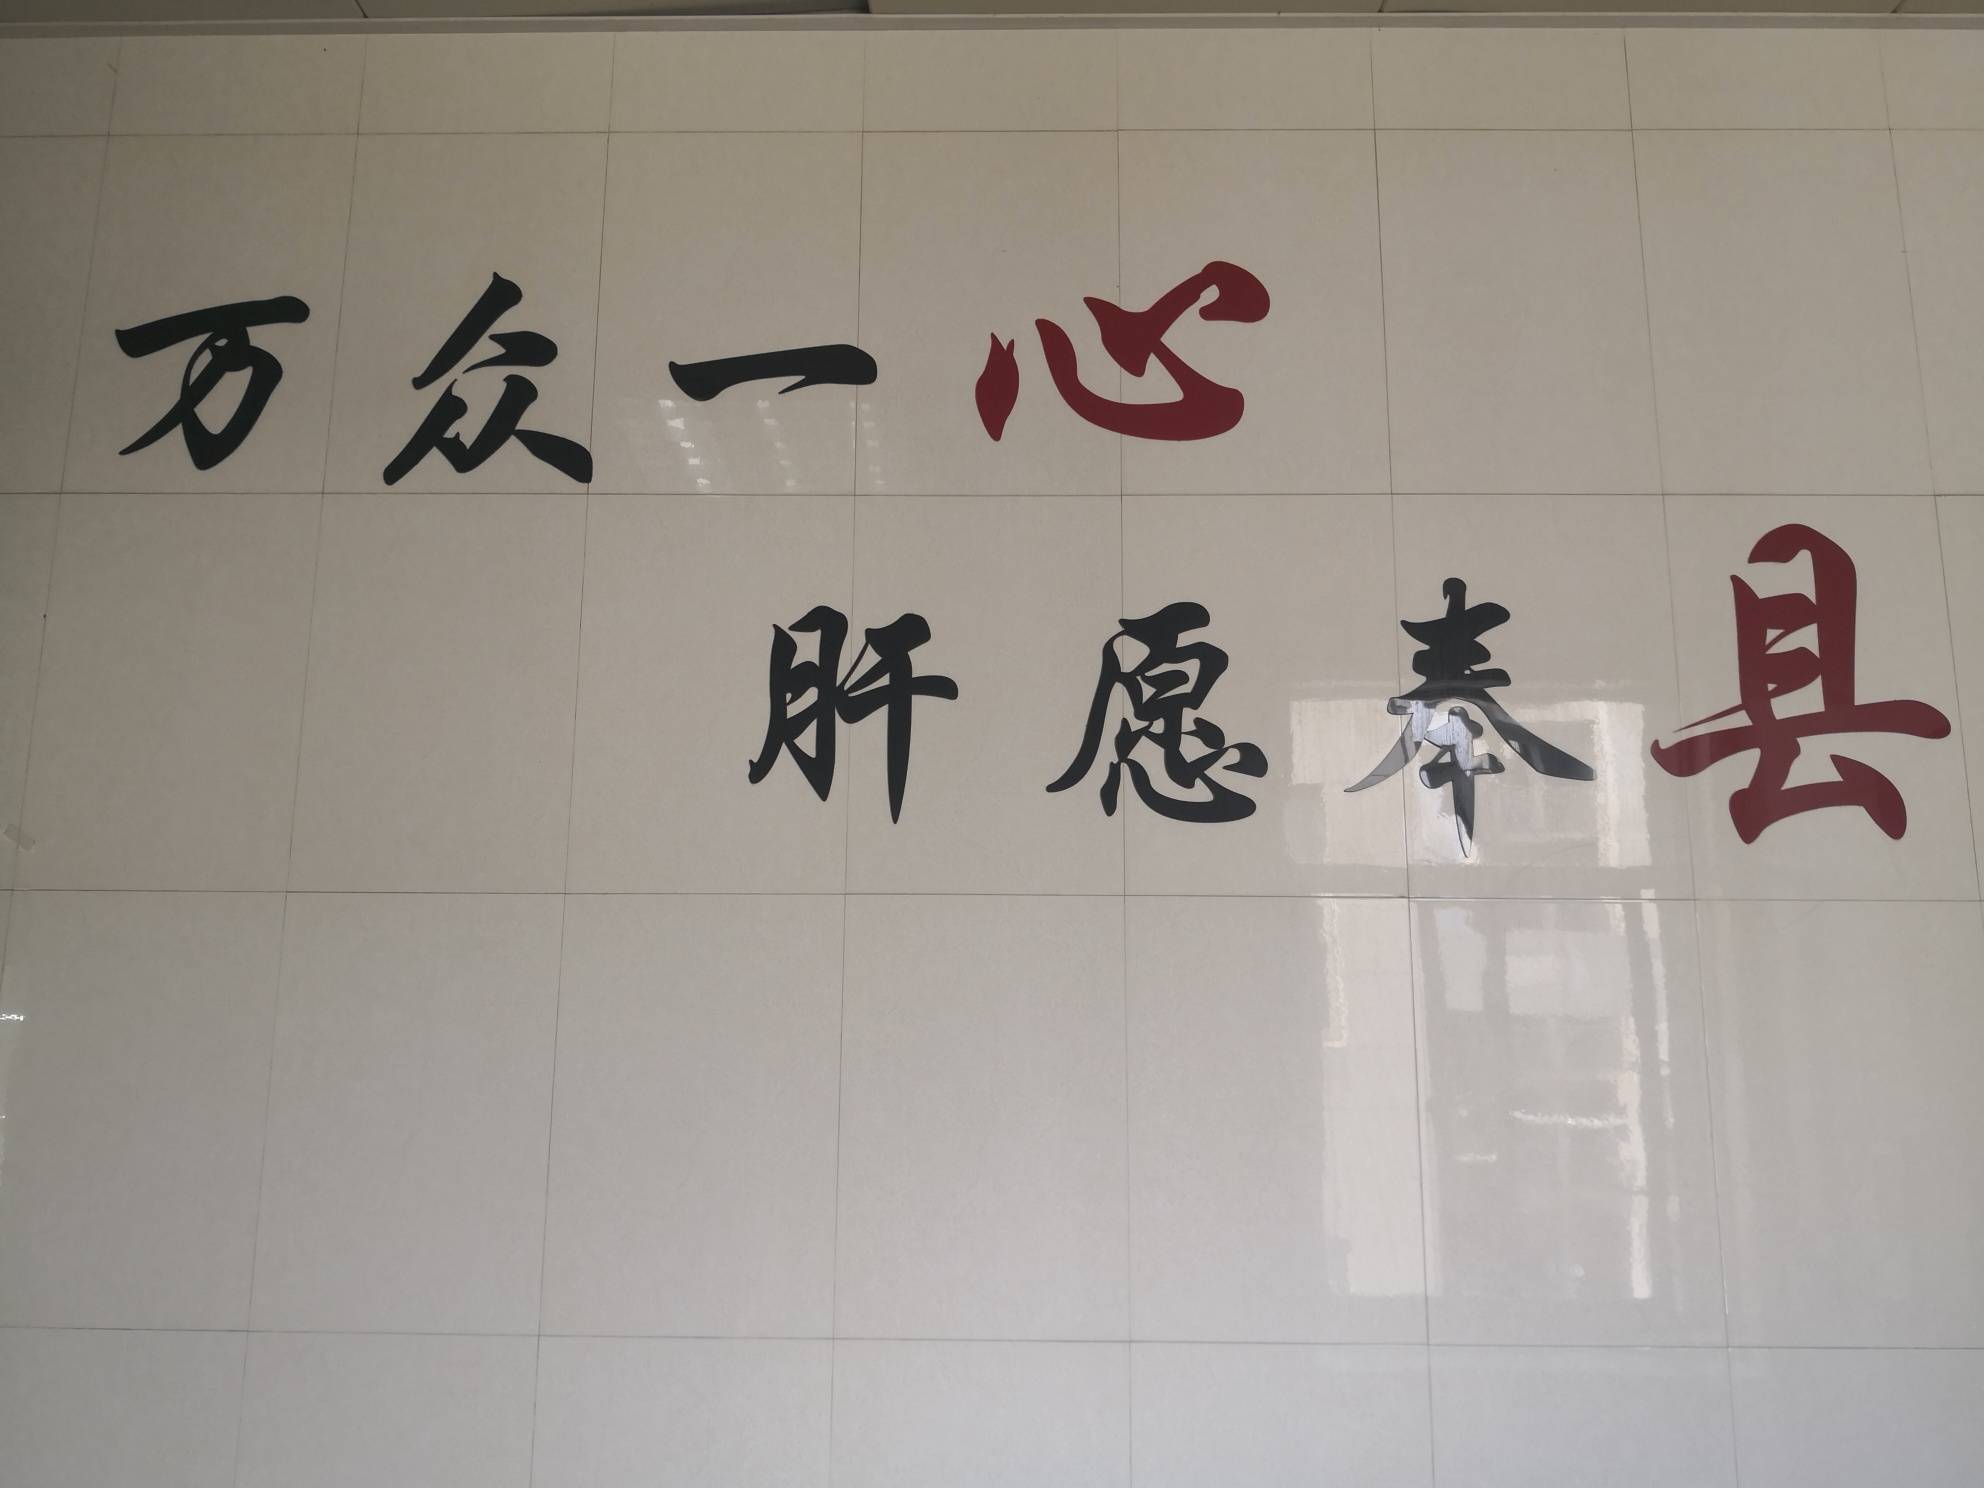 万众一心
肝愿奉县